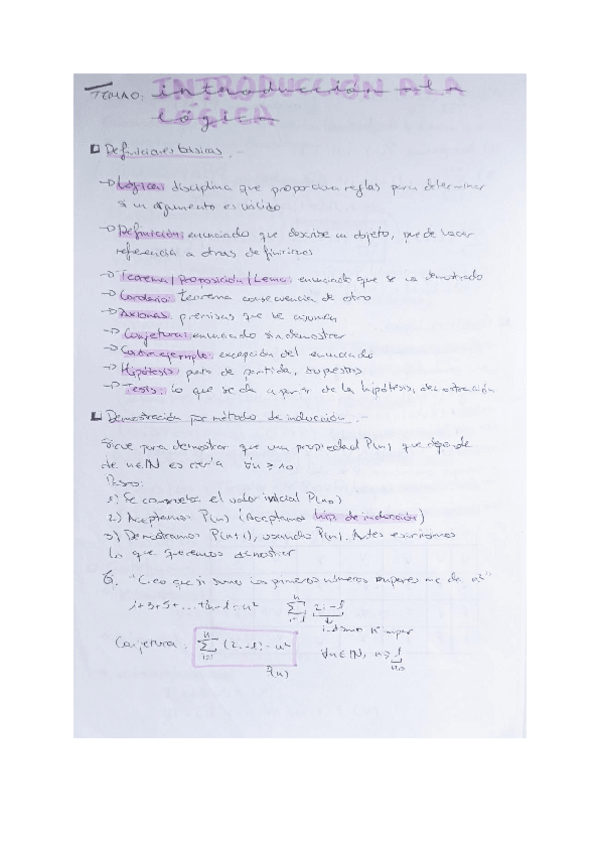 TEMA 0: INTRODUCCIÓN A LA
LÓGICA
Definiciones básicas.-
→ Lógica: disciplina que proporciona reglas para determinar
si un argumento es válido
→ Definición: enunciado que describe un objeto, puede hacer
referencia a otras definiciones
→ Teorema/Proposición/Lema: enunciado que se ha demostrado
→ Corolario: teorema consecuencia de otro
→ Axiomas: premisas que se asumen
→ Conjetura: enunciado sin demostrar
→ Contraejemplo: excepción del enunciado
→ Hipótesis: punto de partida, supuestos
→ Tesis: lo que se da a partir de la hipótesis, demostración
Demostración por método de inducción.-
Sirve para demostrar que una propiedad P(n) que depende
de n∈ℕ es cierta ∀n ≥ n0
Pasos:
1) Se comprueba el valor inicial P(n0)
2) Aceptamos P(n) (Aceptamos hip. de inducción)
3) Demostramos P(n+1), usando P(n). Antes escribimos
lo que queremos demostrar
Ej. "Creo que si sumo los primeros números impares me da n²"
1+3+5+...+2n-1 = n² ∑ i=1 n 2i-1
impar
Conjetura: ∑ i=1 n (2i-1) = n² ∀n∈ℕ, n ≥ 1
P(n) n0